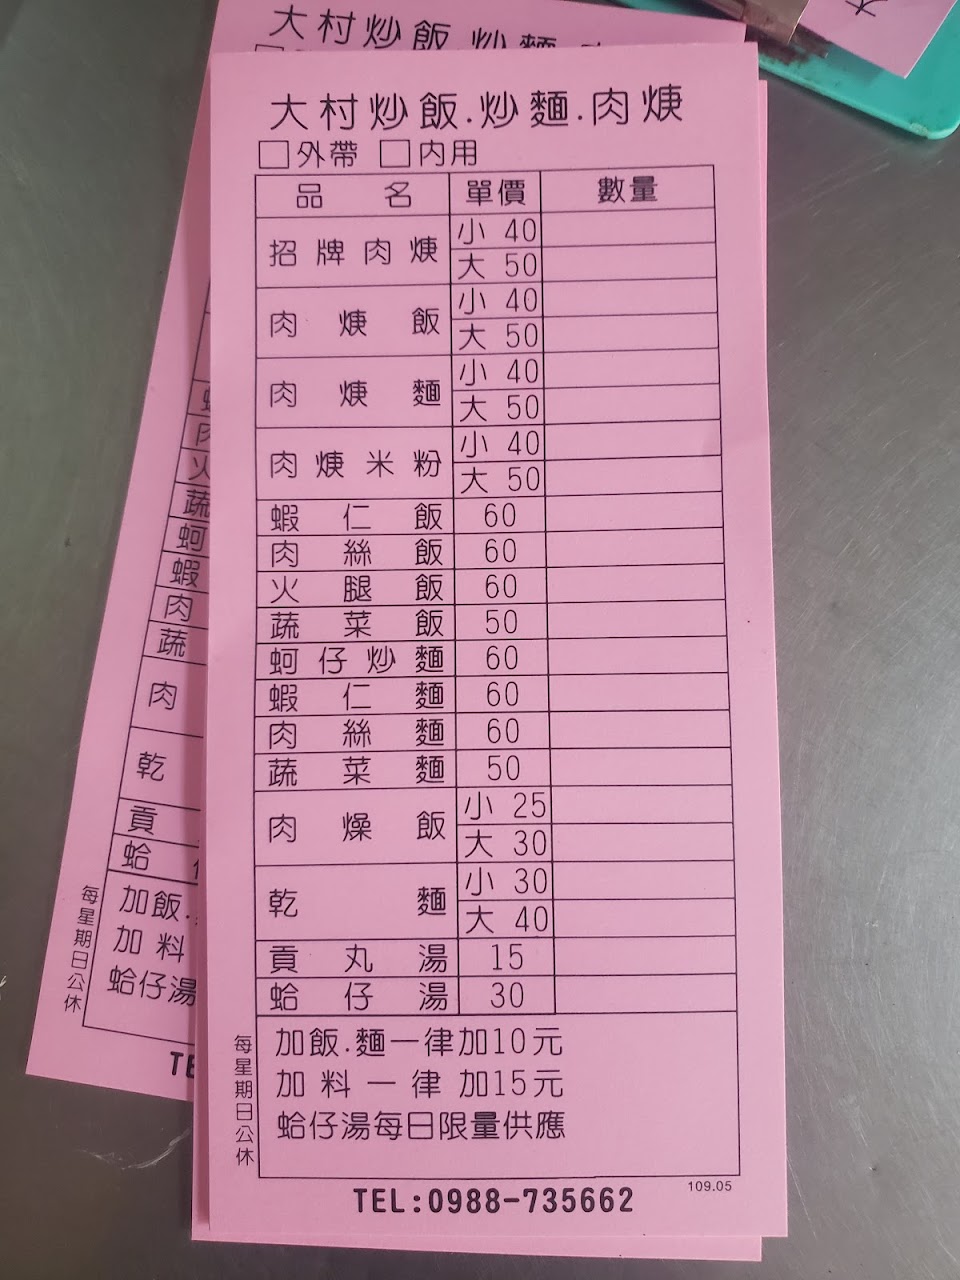 大村炒飯.炒麵.肉焿
□外帶 □内用
品名 單價 數量
招牌肉焿 小 40
大 50
肉焿飯 小 40
大 50
肉焿麵 小 40
大 50
肉焿米粉 小 40
大 50
蝦仁飯 60
肉絲飯 60
火腿飯 60
蔬菜飯 50
蚵仔炒麵 60
蝦仁麵 60
肉絲麵 60
蔬菜麵 50
肉燥飯 小 25
大 30
乾麵 小 30
大 40
貢丸湯 15
蛤仔湯 30
加飯.麵一律加10元
加料一律加15元
蛤仔湯每日限量供應
每星期日公休
109.05
TEL:0988-735662
大村炒飯.炒麵
肉
火
蔬
蚵
蝦
肉
蔬
肉
乾
貢
蛤
加飯.
加料
蛤仔湯
每星期日公休
TE
大